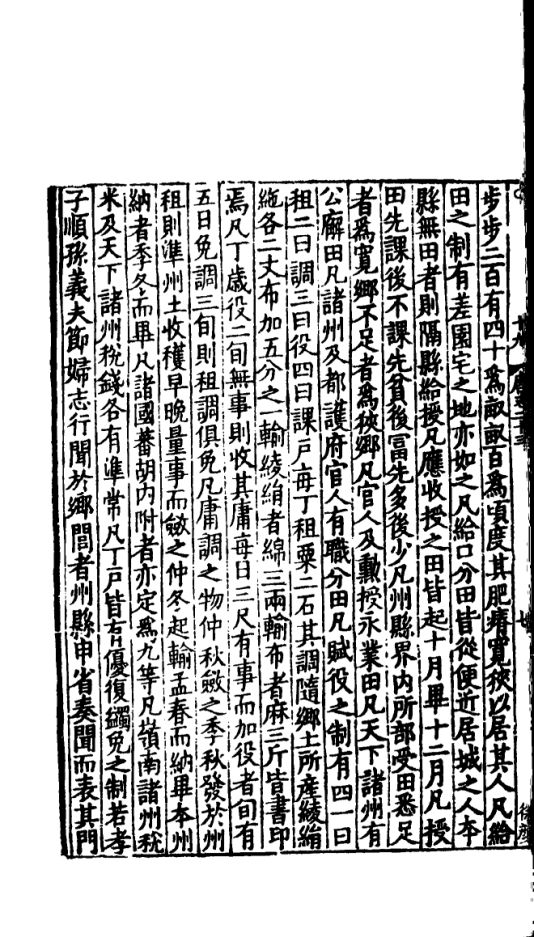 步步二百有四十爲畝畝百爲頃度其肥瘠寛狹以居其人凡給
田之制有差園宅之地亦如之凡給口分田皆從便近居城之人本
縣無田者則隔縣給授凡應收授之田皆起十月畢十二月凡授
田先課後不課先貧後富先多後少凡州縣界内所部受田悉足
者爲寛鄉不足者爲狹鄉凡官人及勳授永業田凡天下諸州有
公廨田凡諸州及都護府官人有職分田凡賦役之制有四一曰
租二曰調三曰役四曰課戸每丁租粟二石其調隨鄉土所産綾絹
絁各二丈布加五分之一輸綾絹者綿三兩輸布者麻三斤皆書印
焉凡丁歲役二旬無事則收其庸每日三尺有事而加役者旬有
五日免調三旬則租調俱免凡庸調之物仲秋斂之季秋發於州
租則準州土收穫早晚量事而斂之仲冬起輸孟春而納畢本州
納者季冬而畢凡諸國蕃胡内附者亦定爲九等凡嶺南諸州稅
米及天下諸州稅錢各有準常凡丁戸皆有優復蠲免之制若孝
子順孫義夫節婦志行聞於鄉閭者州縣申省奏聞而表其門